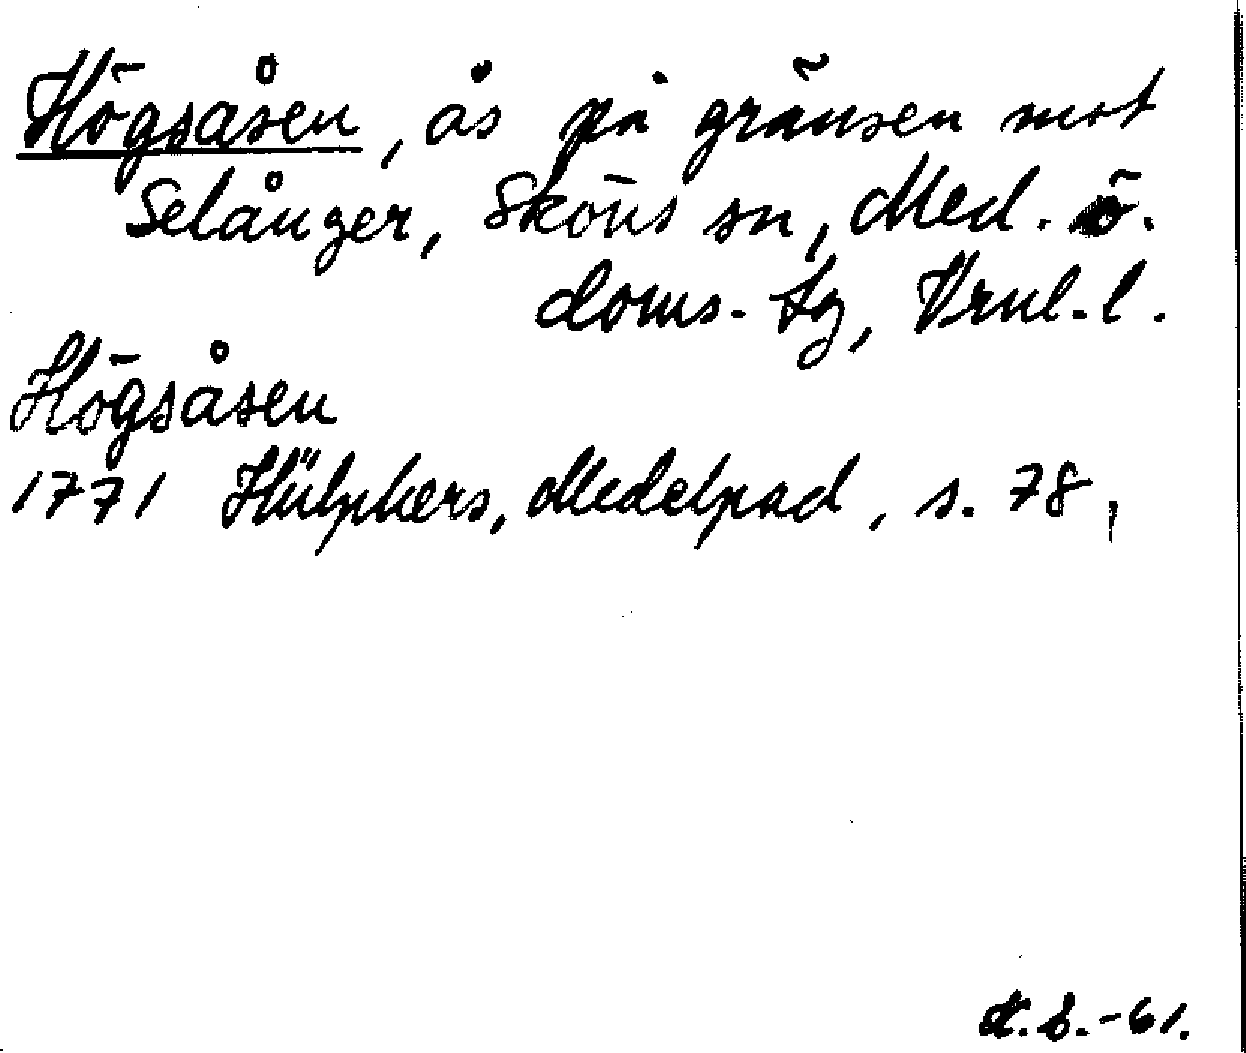 Högsåsen, ås på gränsen mot
Selånger, Sköns sn, Med. ö.
doms. tg, Vrnl. l.
Högsåsen
1771 Hülphers, Medelpad, s. 78,
-61.